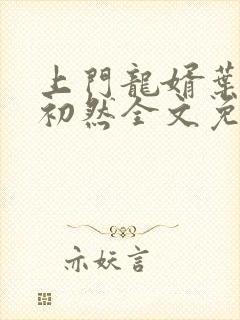 上門龍婿葉
初然全文免
亦妖言